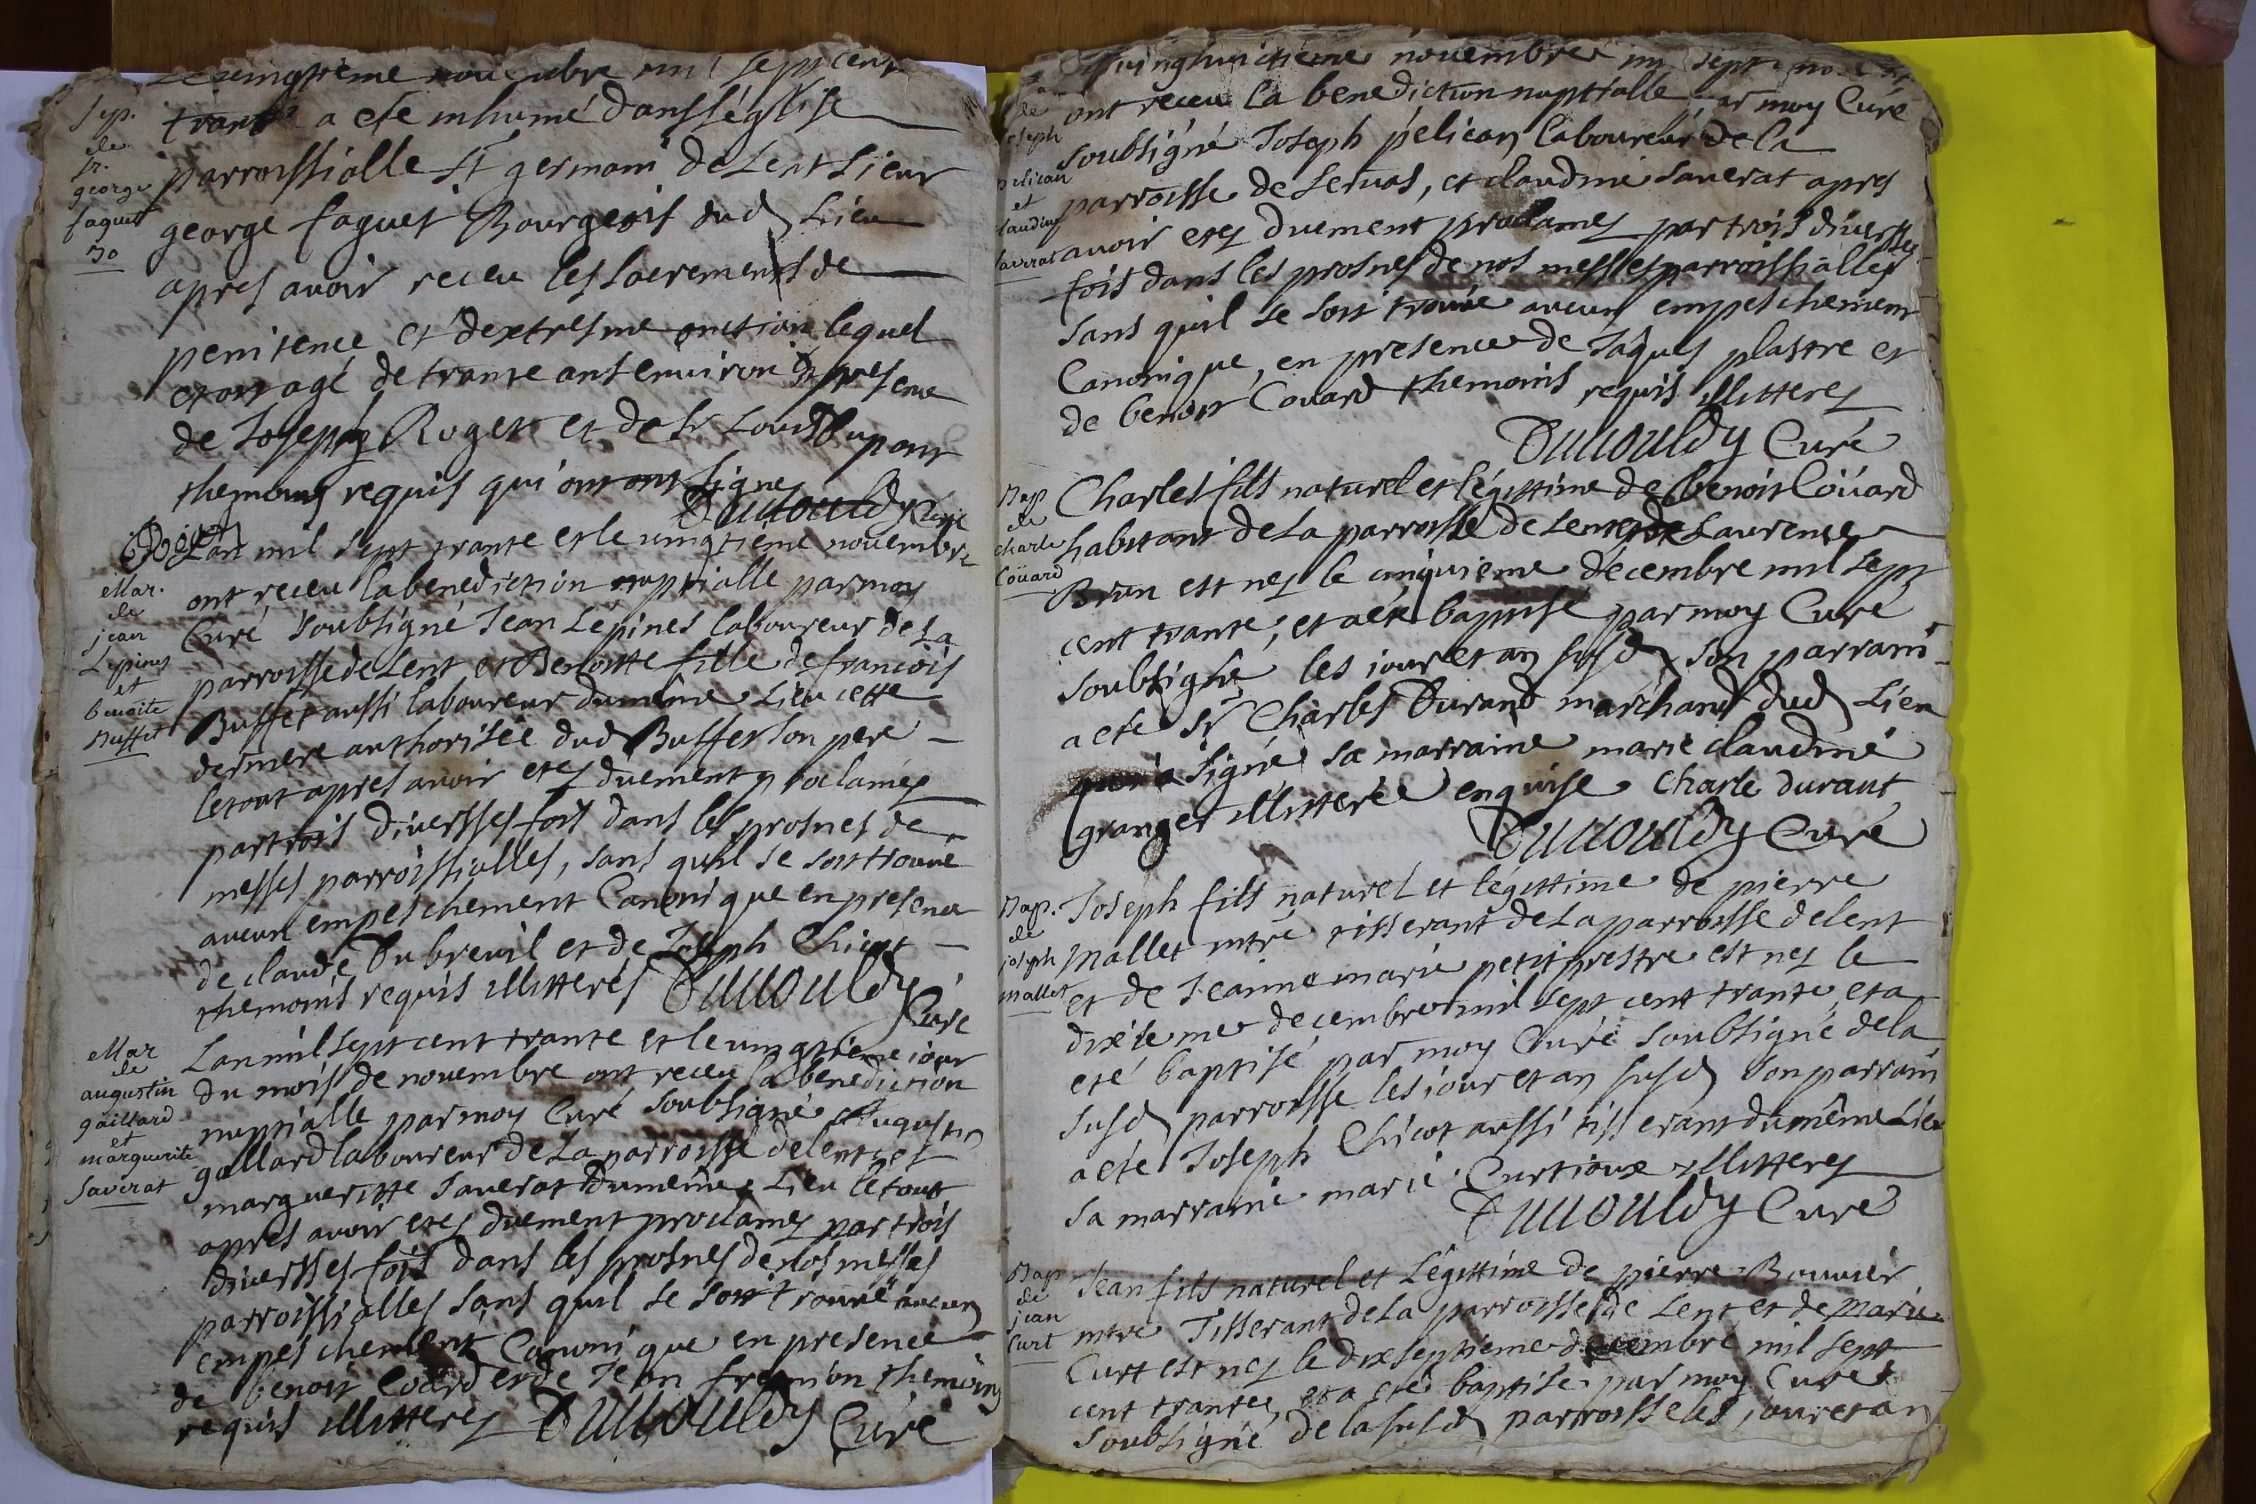 vingtieme novembre mil sept cent
trante a ete inhumé dans l'église
parroissialle st germain de Lent Sieur
george faguet Bourgeois dud Lieu
apres avoir receu les sacrements de
penitence et d'extresme onction lequel
etoit agé de trante ans environ en presence
de Joseph Roget et de sr Louis Dupont
themoins requis qui ont signe
Sep.
de
sr.
george
faguet
30
Duvouldy Curé
Roget
L'an mil sept trante et le vingtieme novembre
ont receu la benediction nuptialle par moy
Curé soubsigné Jean Lépines laboureur de La
parroisse de Lent et Benoitte fille de francois
Buffet aussi laboureur du même Lieu cette
derniere authorisée dud Buffet son pere
le tout apres avoir etez duement proclamez
par trois diversses fois dans les prosnes de
messes parroissialles, sans qu'il se soit trouvé
aucun empeschement Canonique en presence
de claude Dubreuil et de Joseph Chicot
themoins requis illitterés Duvouldy
Curé
Mar.
de
jean
Lepines
et
benoite
Buffet
L'an mil sept cent trante et le vingtieme jour
du mois de novembre ont receu la benediction
nuptialle par moy Curé soubsigné Augustin
gallard laboureur de La parroisse de lent et
margueritte Saverat du même Lieu le tout
apres avoir etez duement proclamez par trois
diversses fois dans les prosnes de nos messes
parroissialles sans qu'il se soit trouvé aucun
empeschement Canonique en presence
de benoit Coüard et de Jean fremion themoins
requis illitterez Duvouldy Curé
Mar
de
augustin
gaillard
et
marguerite
Saverat
vingthuictieme novembre mil sept
ont receu la benediction nuptialle par moy Curé
soubsigné Joseph pélican laboureur de la
parroisse de Servas, et claudine saverat apres
avoir etez duement proclamez par trois diversses
fois dans les prosnes de nos messes parroissialles
sans qu'il se soit trouvé aucun empeschement
Canonique, en presence de Jâques plastre et
de benoit Coüard themoins requis illitterez
Duvouldy Curé
de
joseph
pelican
et
claudine
saverat
Charles fils naturel et légittime de benoit Coüard
habitant de La parroisse de Lent et de Laurence
Brun est nez le cinquieme décembre mil sept
cent trante, et a été baptisé par moy Curé
soubsigné les jour et an susd son parrain
a ete sr Charles Durand marchand dud Lieu
qui a signé sa marraine marie claudine
granger illitterée enquise Charle durant
Duvouldy Curé
Bap
de
charle
Coüard
Joseph fils naturel et légittime de pierre
Mallet mtré tisserant de La parroisse de lent
et de Jeanne marie petitprestre est nez le
dixieme decembre mil sept cent trante, et a
eté baptisé par moy Curé soubsigné de la
susd parroisse les jour et an susd son parrain
a ete Joseph Chicot aussi tisserant du même Lieu
sa marraine marie Curtioux illitterez
Duvouldy Curé
Bap.
de
joseph
mallet
Jean fils naturel et Légittime de pierre Bouvier
mtre Tisserant de La parroisse de Lent et de Marie
Curt est nez le dixseptieme decembre mil sept
cent trante, et a eté baptise par moy Curé
soubsigné de la susd parroisse les jour et an
Bap
de
jean
Curt